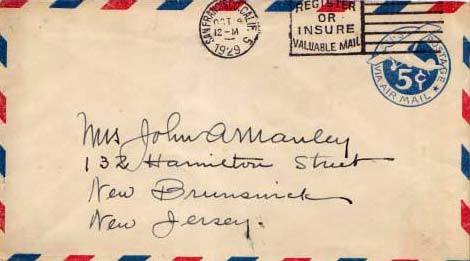 SAN FRANCISCO, CALIF. 5
OCT 9
12-M
1929
REGISTER
OR
INSURE
VALUABLE MAIL
U.S. POSTAGE
5¢
VIA AIR MAIL
Mrs John A Manley
132 Hamilton Street
New Brunswick
New Jersey.